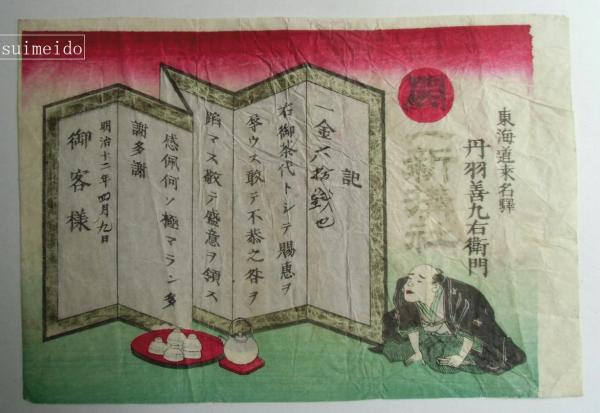 suimeido
東海道桒名驛
丹羽善九右衛門
一新講社
記
一金六拾戔也
右御茶代トシテ賜惠ヲ
辱ウス敢テ不恭之咎ヲ
蹈マス敬テ盛意ヲ領ス
感佩何ソ極マラン多
謝多謝
明治十二年四月九日
御客様